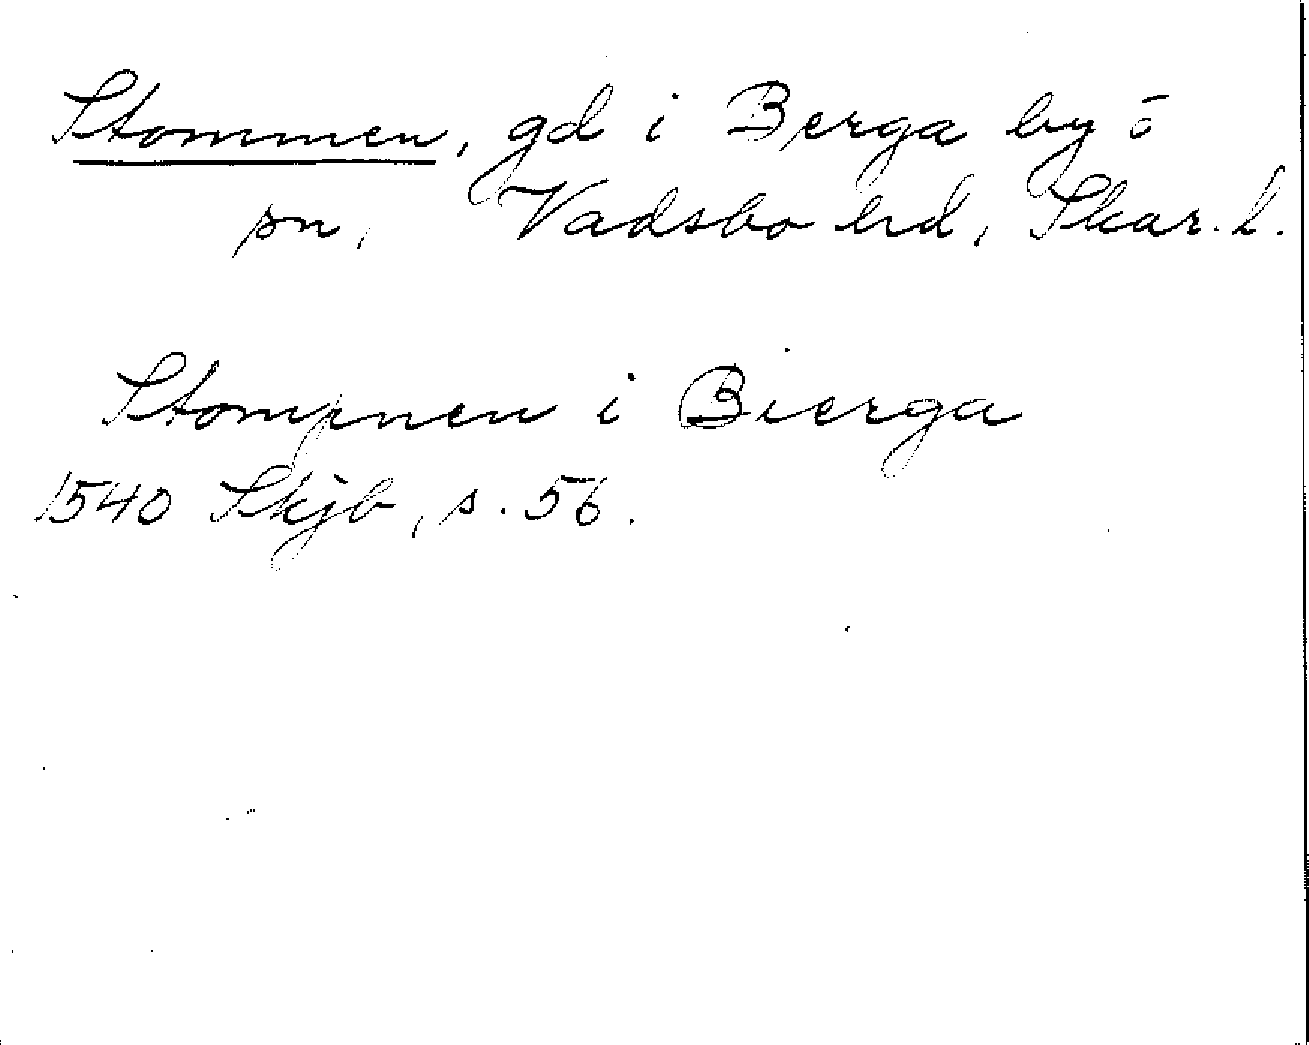 Stommen, gd i Berga by ō
sn, Vadsbo hd, Skar. l.
Stompnen i Bierga
1540 Skjb, s. 56.